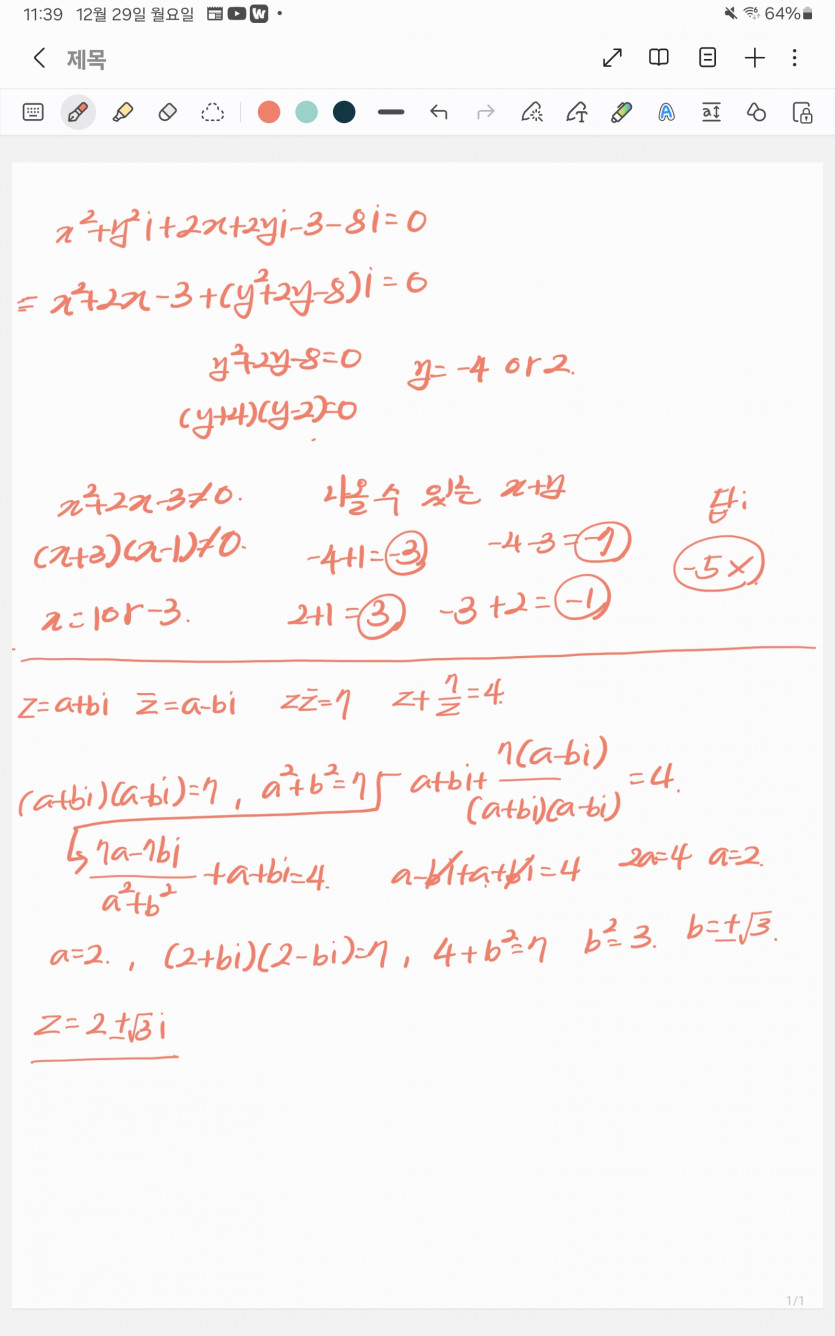 11:39 12월 29일 월요일 W 64%
제목
x²+y²i+2x+2yi-3-8i=0
= x²+2x-3+(y²+2y-8)i=0
y²+2y-8=0 y=-4 or 2.
(y+4)(y-2)=0
x²+2x-3≠0. 나올 수 있는 x+y 답:
(x+3)(x-1)≠0. -4+1=-3 -4-3=-7 -5 X
x=1 or -3. 2+1=3 -3+2=-1
z=a+bi z̄=a-bi zz̄=7 z+7/z=4.
(a+bi)(a-bi)=7, a²+b²=7 a+bi+7(a-bi)/(a+bi)(a-bi)=4.
7a-7bi/a²+b²+a+bi=4. a-bi+a+bi=4 2a=4 a=2.
a=2., (2+bi)(2-bi)=7, 4+b²=7 b²=3. b=±√3.
z=2±√3i
1/1